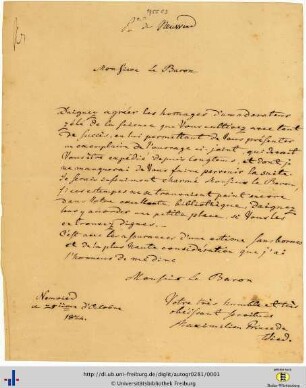 Monsieur le Baron
Daignez agréer les hommages d'un adorateur
zélé de la science que Vous cultivez avec tant
de succès, en lui permettant de Vous présenter
un exemplaire de l'ouvrage ci-joint qui devait
Vous être expédié depuis longtems et dont je
ne manquerai de Vous faire parvenir la suite.
Je serois infiniment charmé Monsieur le Baron,
si ces estampes ne se trouvaient point encore
dans Votre excellente bibliothèque. Daignez
leur y accorder une petite place, si Vous les
en trouvez dignes.
C'est avec l'assurance d'une estime sans bornes
et de la plus haute considération que j'ai
l'honneur de me dire
Monsieur le Baron
Neuwied
Votre très humble et très
obéissant serviteur
Maximilien Prince de
Wied.
http://dl.ub.uni-freiburg.de/diglit/autogr0281/0001
© Universitätsbibliothek Freiburg